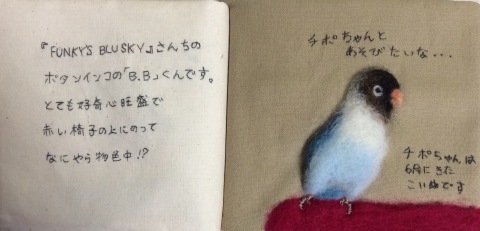 『FUNKY'S BLUSKY』さんちの
ボタンインコの「B.B」くんです。
とても好奇心旺盛で
赤い椅子の上にのって
なにやら物色中!?
チポちゃんと
あそびたいな...
チポちゃんは
6月にきた
こい
です